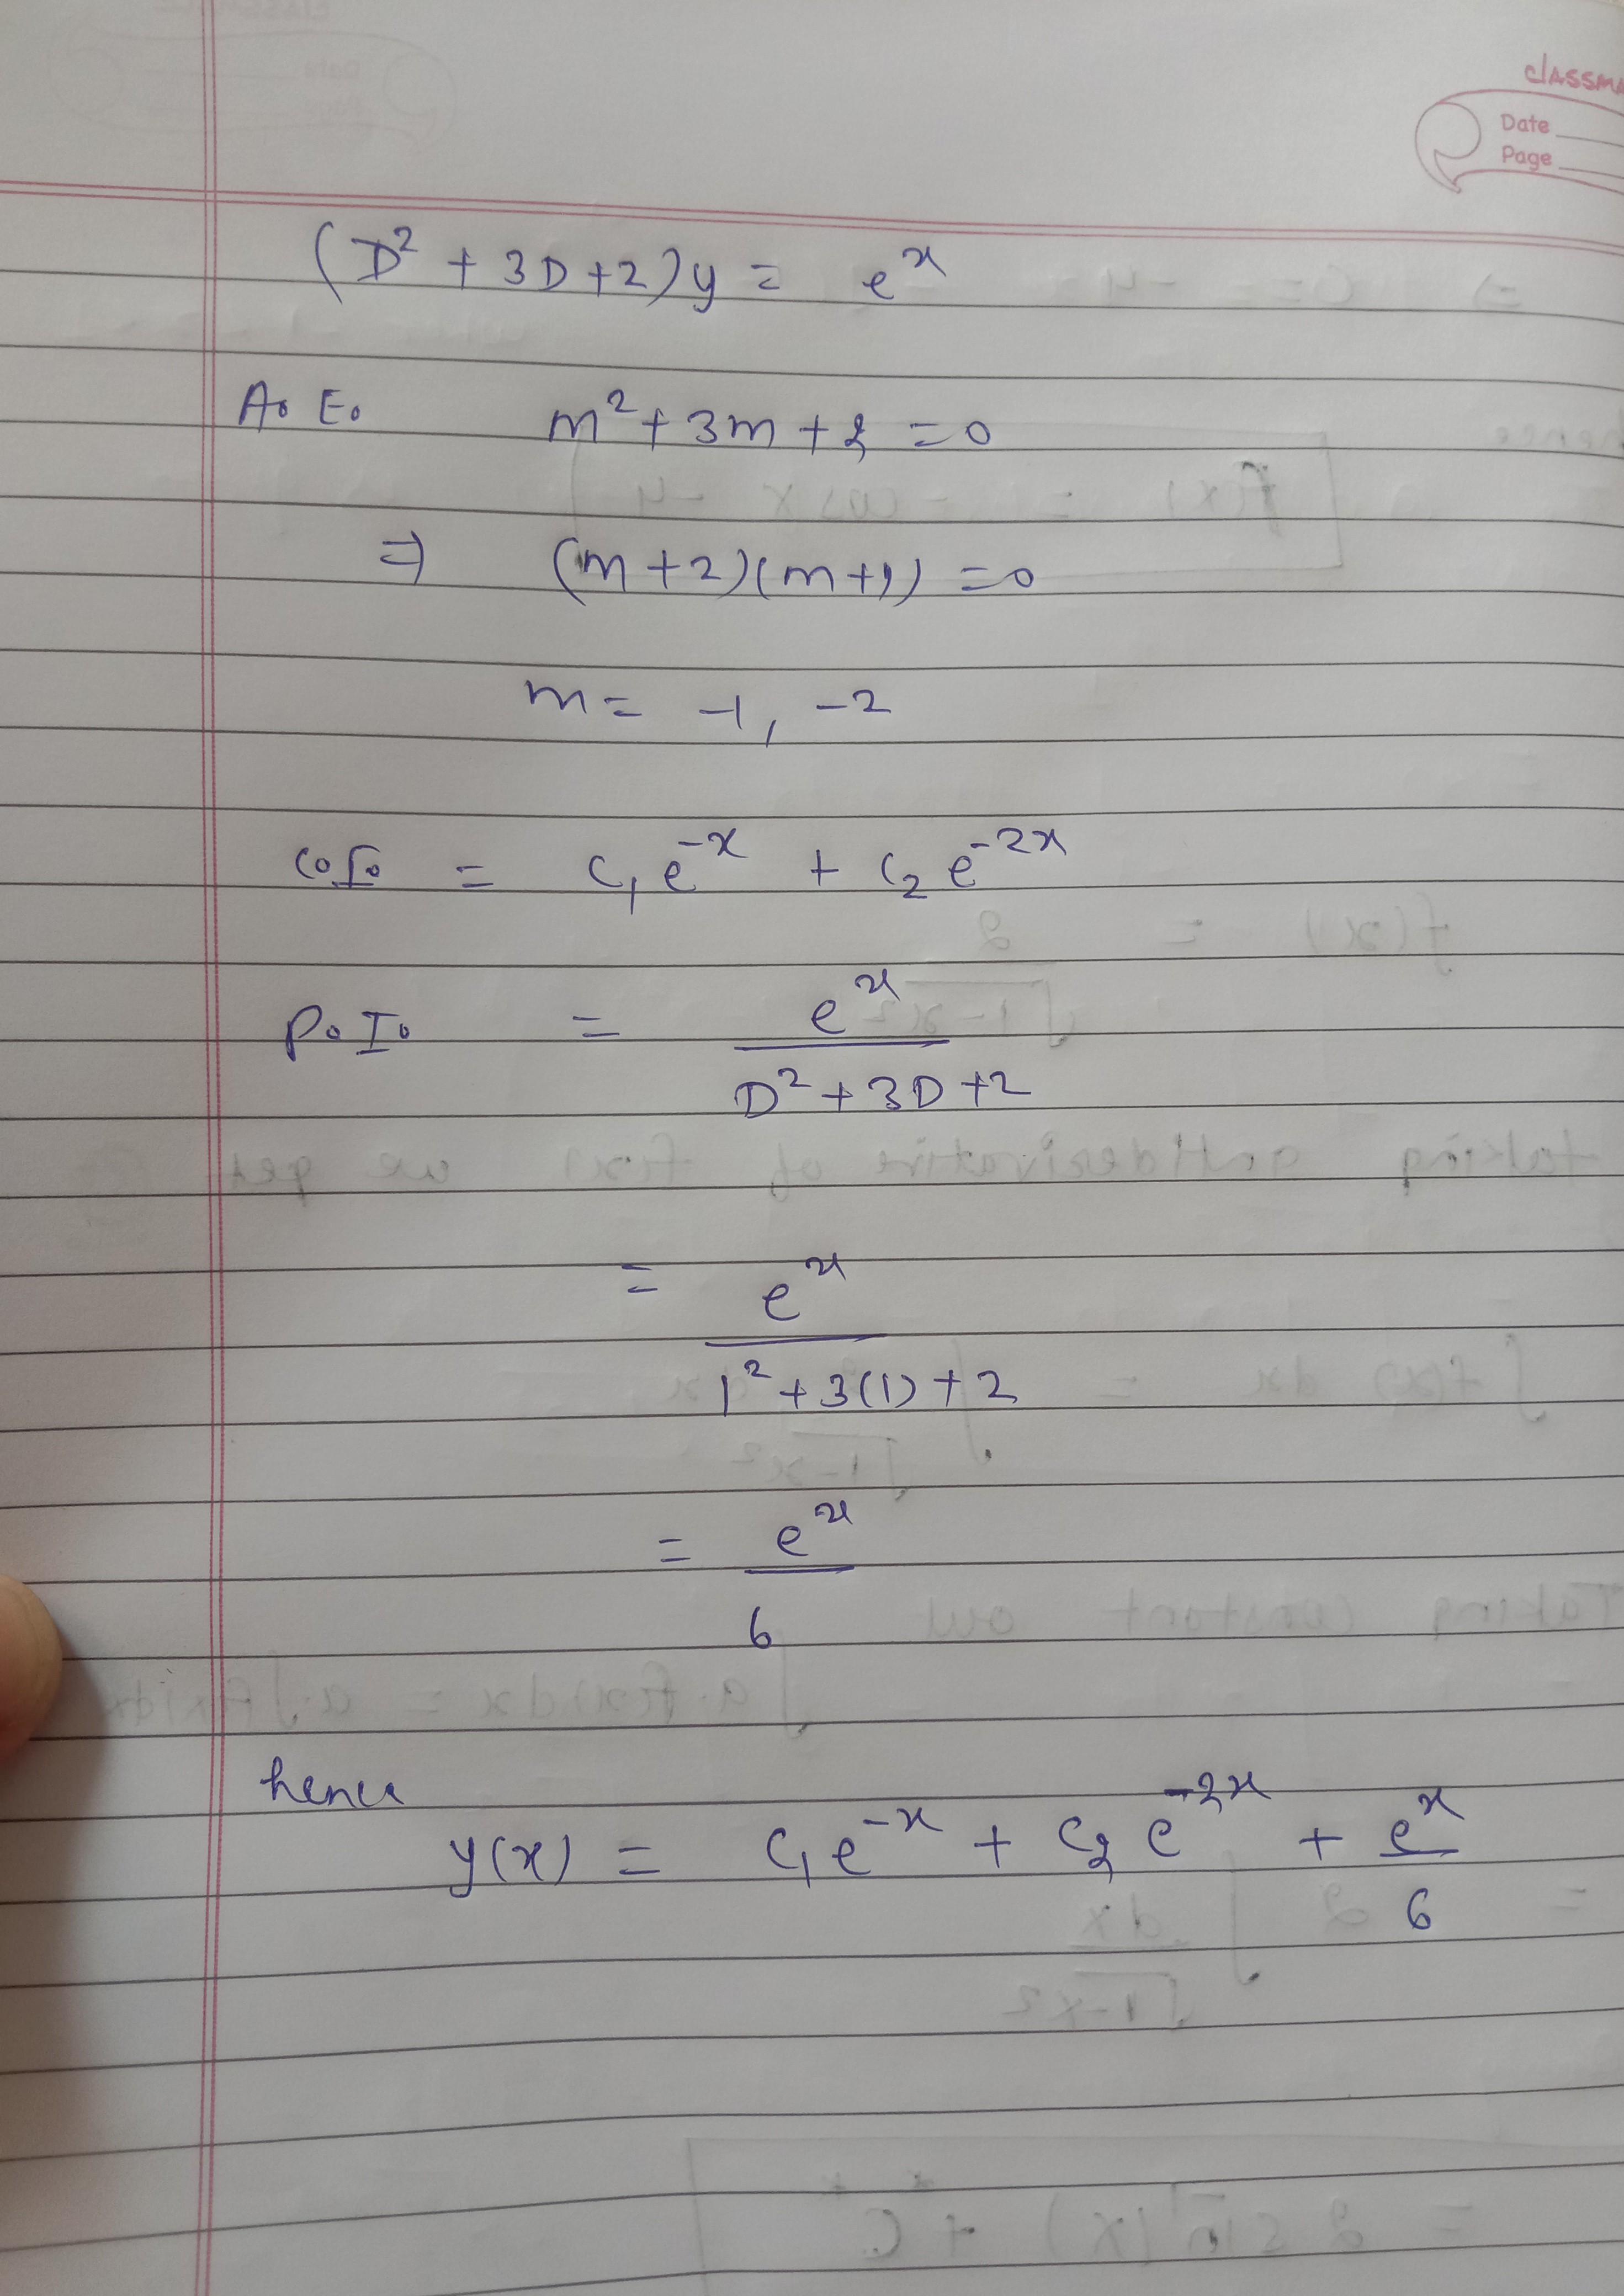 classma
Date
Page
(D² + 3D + 2)y = eˣ
A.E. m² + 3m + 2 = 0
⇒ (m + 2)(m + 1) = 0
m = -1, -2
C.F. = C₁e⁻ˣ + C₂e⁻²ˣ
P.I. = eˣ / (D² + 3D + 2)
= eˣ / (1² + 3(1) + 2)
= eˣ / 6
hence
y(x) = C₁e⁻ˣ + C₂e⁻²ˣ + eˣ / 6